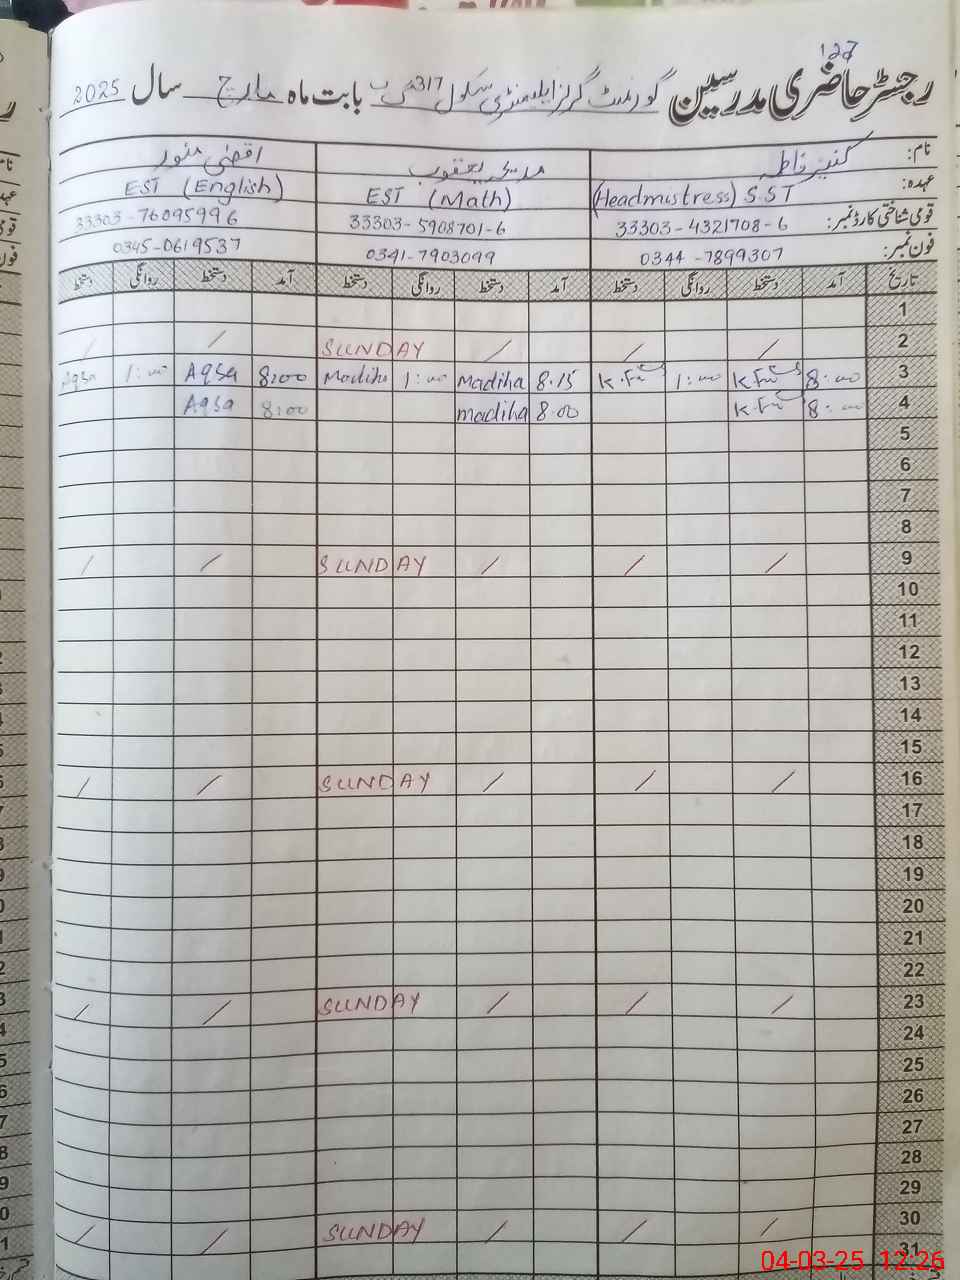 127
رجسٹر حاضری مدرسین گورنمنٹ گرلز ایلیمنٹری سکول 317 گ ب بابت ماہ مارچ سال 2025
نام: کنیز فاطمہ مدیحہ یعقوب اقصیٰ منور
عہدہ: (Headmistress) S.S.T EST (Math) EST (English)
قومی شناختی کارڈ نمبر: 33303-4321708-6 33303-5908701-6 33303-7609599 6
فون نمبر: 0344-7899307 0341-7903099 0345-0619537
تاریخ آمد دستخط روانگی دستخط آمد دستخط روانگی دستخط آمد دستخط روانگی دستخط
1
2 / / / SUNDAY / /
3 8:00 K.F 1:00 K.F 8.15 Madiha 1:00 Madiha 8:00 Aqsa 1:00 Aqsa
4 8:00 K.F 8.00 madiha 8:00 Aqsa
5
6
7
8
9 / / / SUNDAY / /
10
11
12
13
14
15
16 / / / SUNDAY / /
17
18
19
20
21
22
23 / / / SUNDAY / /
24
25
26
27
28
29
30 / / / SUNDAY / /
31
04-03-25 12:26